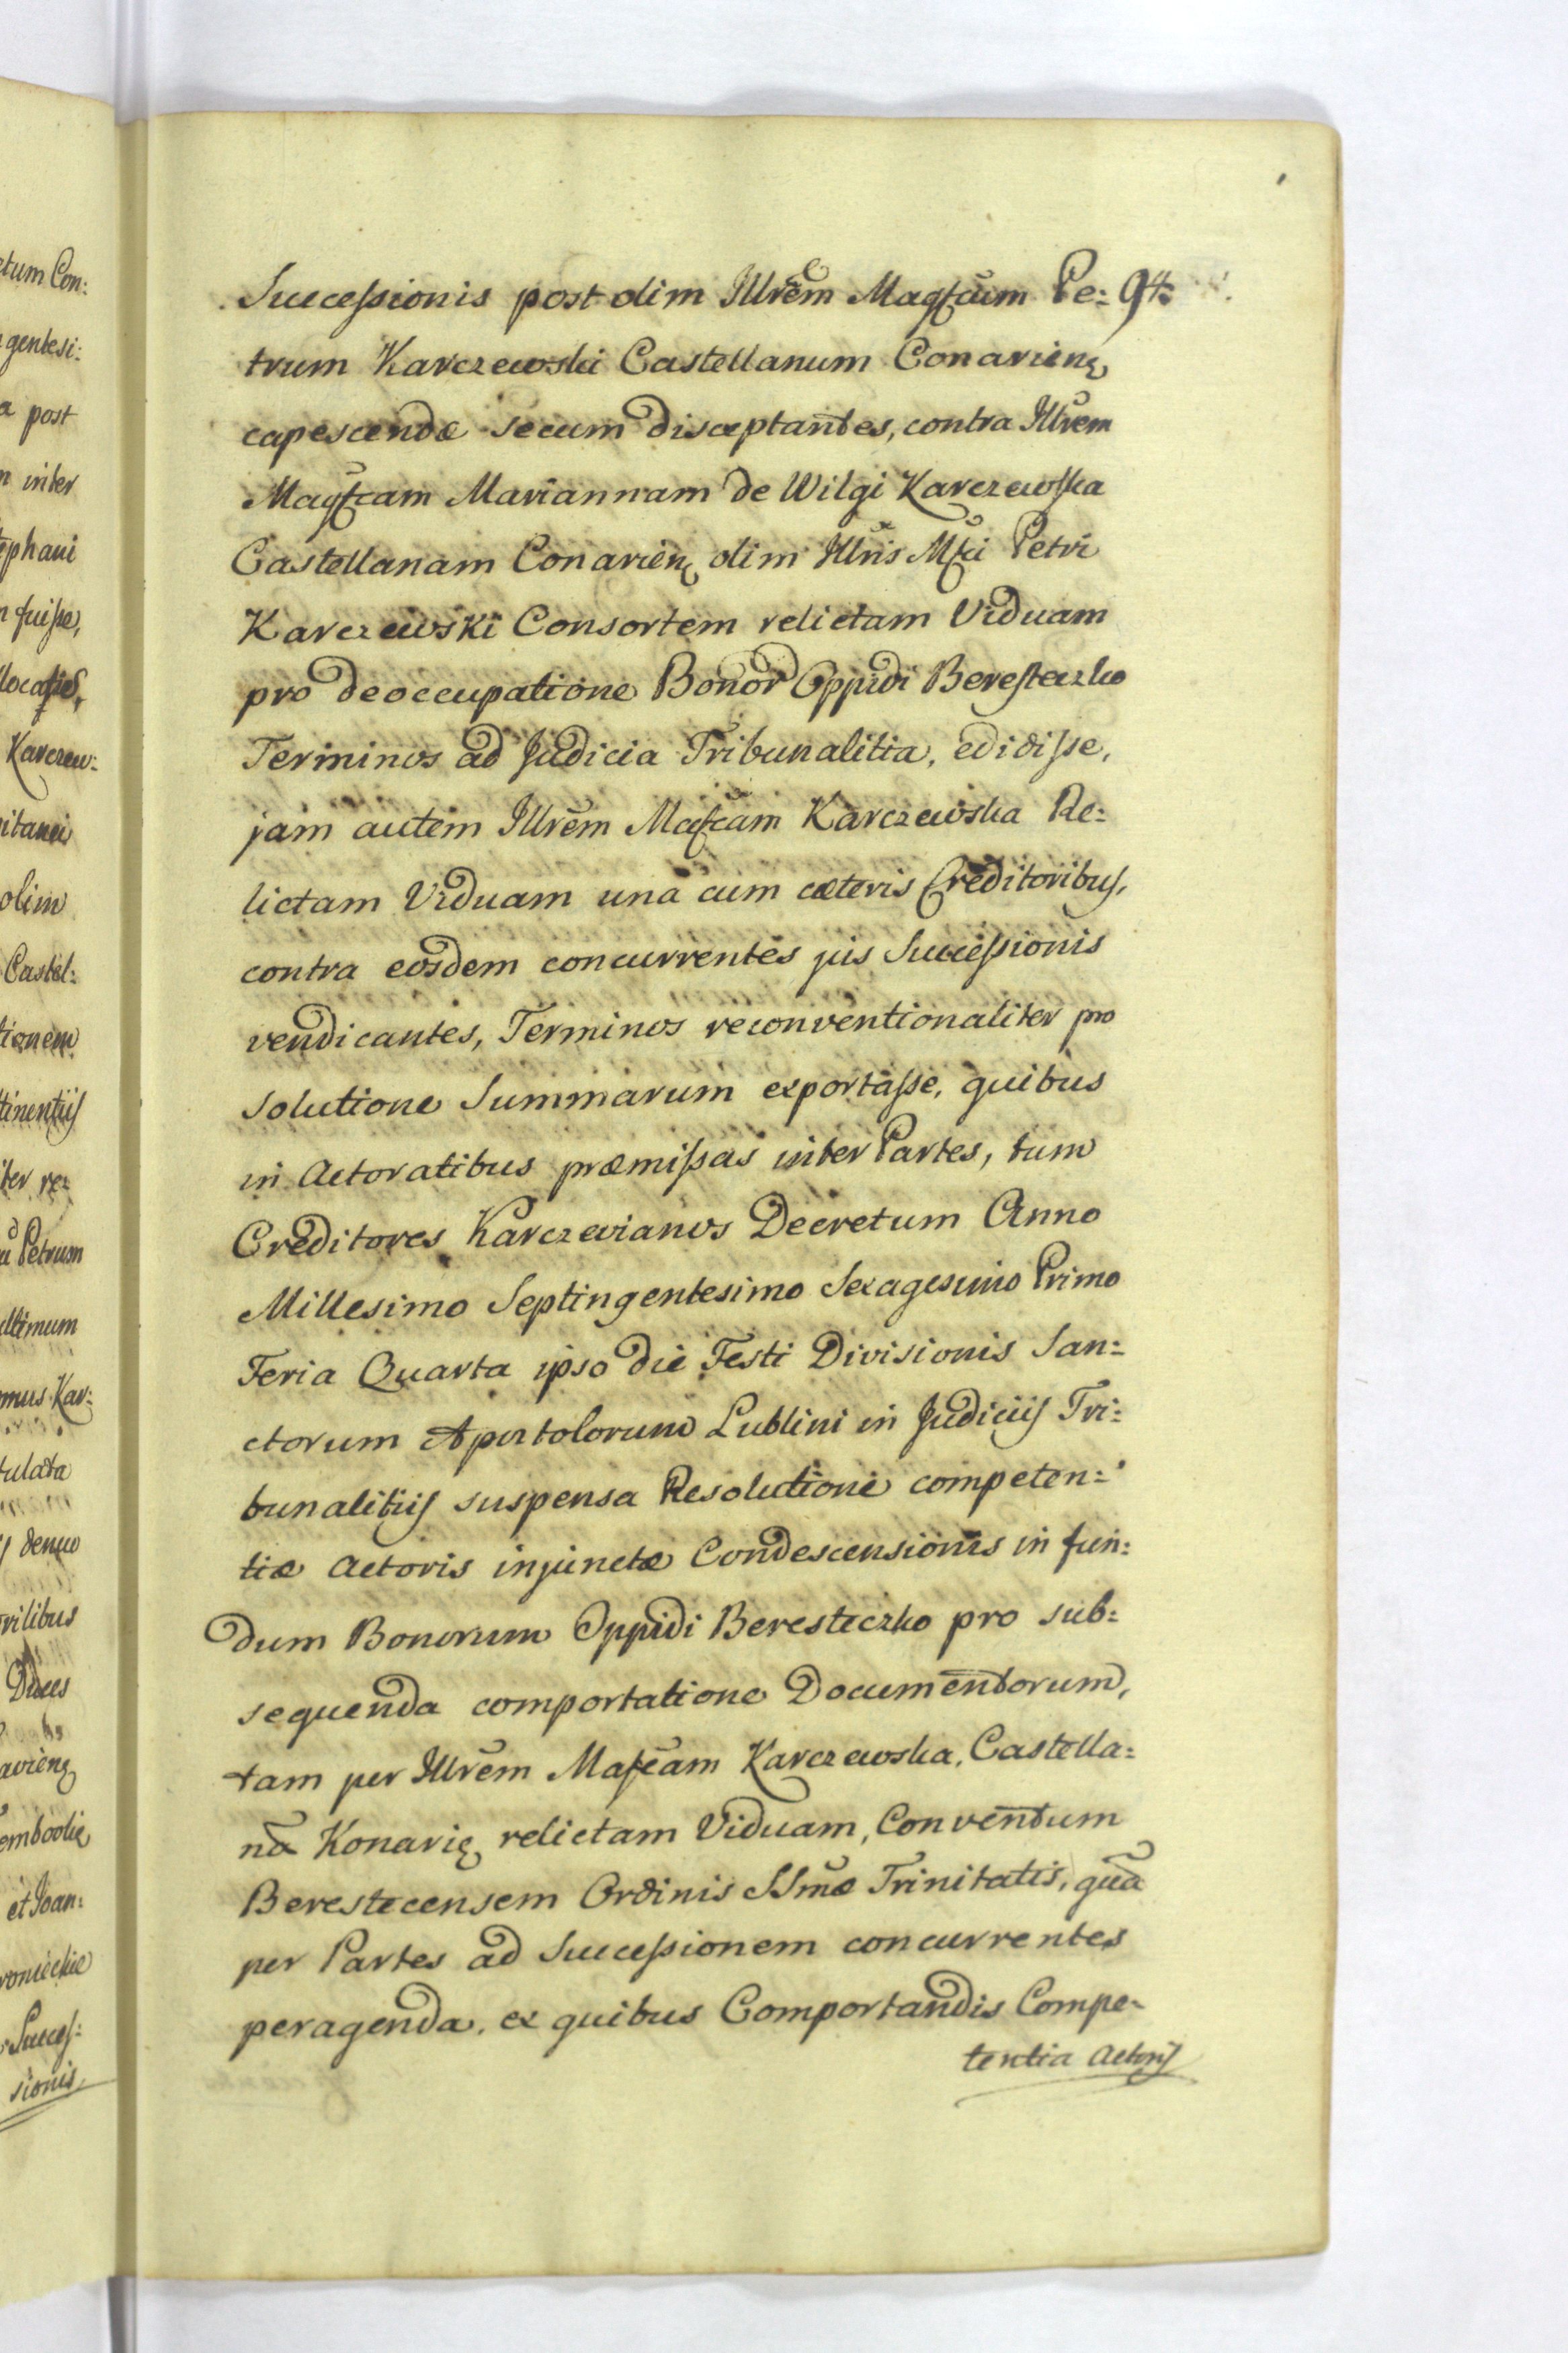 Successionis post olim Illrem Magfcum Pe: 94.
trum Karczewski Castellanum Conarieng
capescendæ secum disceptantes, contra Illrem
Magfcam Mariannam de Wilgi Karczewska
Castellanam Conarien olim Illris Mfci Petri
Karczewski Consortem relictam Viduam
pro deoccupatione Bonor Oppidi Beresteczko
Terminos ad Judicia Tribunalitia, edidisse,
jam autem Illrem Mafcam Karczewska Re:
lictam Viduam una cum cæteris Creditoribus,
contra eosdem concurrentes jus Successionis
vendicantes, Terminos reconventionaliter pro
solutione Summarum exportasse, quibus
in Actoratibus præmissas inter Partes, tum
Creditores Karczevianos Decretum Anno
Millesimo Septingentesimo Sexagesimo Primo
Feria Quarta ipso die Festi Divisionis San:
ctorum Apostolorum Lublini in Judiciis Tri:
bunalitiis suspensa Resolutione competen:
tiæ Actoris injunctæ Condescensionis in fun:
dum Bonorum Oppidi Beresteczko pro sub:
sequenda comportatione Documentorum,
tam per Illrem Mafcam Karczewska, Castella:
na Konarie relictam Viduam, Conventum
Berestecensem Ordinis SSmæ Trinitatis, qua
per Partes ad Successionem concurrentes
peragenda, ex quibus Comportandis Compe:
tentia Actoris
etum Con:
gentesi:
a post
n inter
tephani
n fuisse,
Karczew:
itanei
olim
Castel:
tionem
tinentiis
ter re:
Petrum
ultimum
mus Kar:
tulata
denuo
rilibus
Duces
arieng
et Joan:
Succes:
sionis